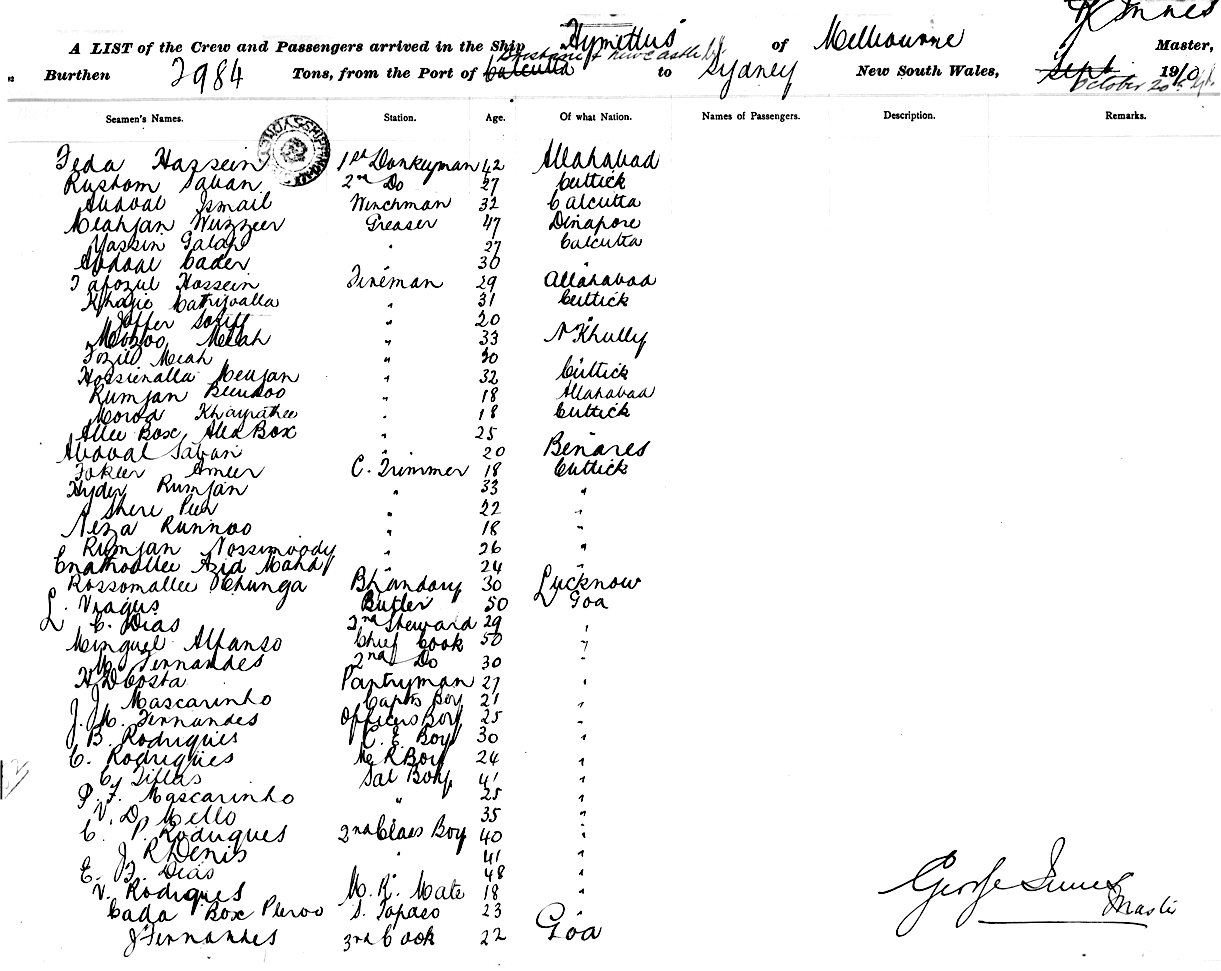 G Innes
A LIST of the Crew and Passengers arrived in the Ship Hymettus of Melbourne Master,
Brisbane & Newcastle
Burthen 2984 Tons, from the Port of Calcutta to Sydney New South Wales, Sept 1910
October 20th
Seamen's Names. Station. Age. Of what Nation. Names of Passengers. Description. Remarks.
Feda Hassein 1st Donkeyman 42 Allahabad
Rustom Saban 2nd Do 27 Cuttick
Abdoal Ismail Winchman 32 Calcutta
Meahjan Wuzzeer Greaser 47 Dinapore
Yassin Golab " 27 Calcutta
Abdoal Cader 30 "
Tafozul Hossein Fireman 29 Allahabad
Khajie Catrijvalla " 31 Cuttick
Jaffer Soriff " 20 "
Meah " 33 N Khully
Fozil Meah " 30
Hossienalla Meujan " 32 Cuttick
Rumjan " 18 Allahabad
Morod Khayrathee " 18 Cuttick
Allee Box Alla Box " 25
Abdoal Saban 20 Benares
Fokeer Ameer C. Trimmer 18 Cuttick
Hyder Rumjan " 33 "
Shere Peer " 22 "
Neza Runnoo " 18 "
Rumjan Nossimoody " 26 "
Enathoollee Azid Mahd " 24 "
Rossomallee Chunga Bhandary 30 Lucknow
L. Viagus Butler 50 Goa
L. C. Dias 2nd Steward 29 "
Minguel Alfanso Chief Cook 50 "
M. Fernandes 2nd Do 30 "
H D Costa Pantryman 27 "
J. J. Mascarinho Capts Boy 21 "
J. M. Fernandes Officers Boy 25 "
B. Rodrigues C. E. Boy 30 "
C. Rodrigues Boy 24 "
C. Sal Boy 41 "
P. F. Mascarinho " 25 "
V. D. Mello 35 "
C. P. Rodrigues 2nd Class Boy 40 "
J R Denis " 41 "
E. F. Dias " 48 "
V. Rodriges M. R. Mate 18 "
Cada Box Peroo S. Topaso 23 "
J Fernandes 3rd Cook 22 Goa
George Innes
Master